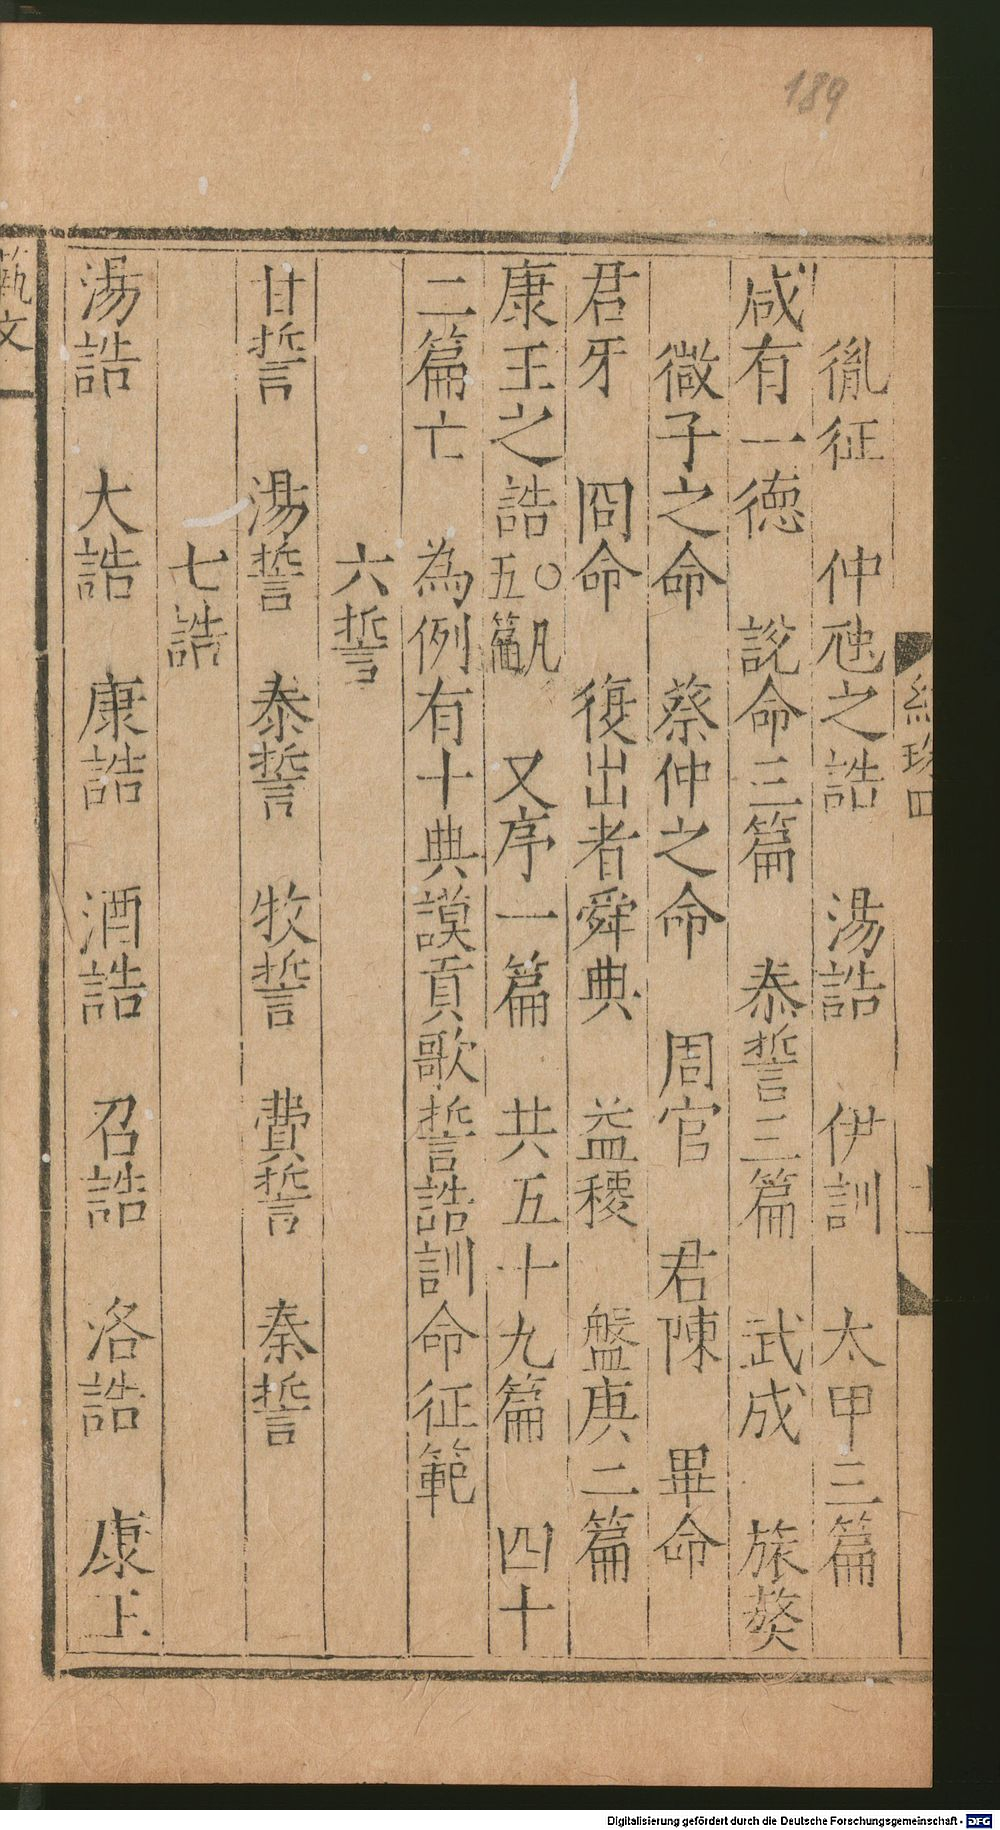 189
胤征　仲虺之誥　湯誥　伊訓　太甲三篇
咸有一德　說命三篇　泰誓三篇　武成　旅獒
微子之命　蔡仲之命　周官　君陳　畢命
君牙　冏命　復出者舜典　益稷　盤庚二篇
康王之誥〇凡五篇　又序一篇　共五十九篇　四十
二篇亡　為例有十典謨貢歌誓誥訓命征範
六誓
甘誓　湯誓　泰誓　牧誓　費誓　秦誓
七誥
湯誥　大誥　康誥　酒誥　召誥　洛誥　康王
藝文
Digitalisierung gefördert durch die Deutsche Forschungsgemeinschaft - DFG